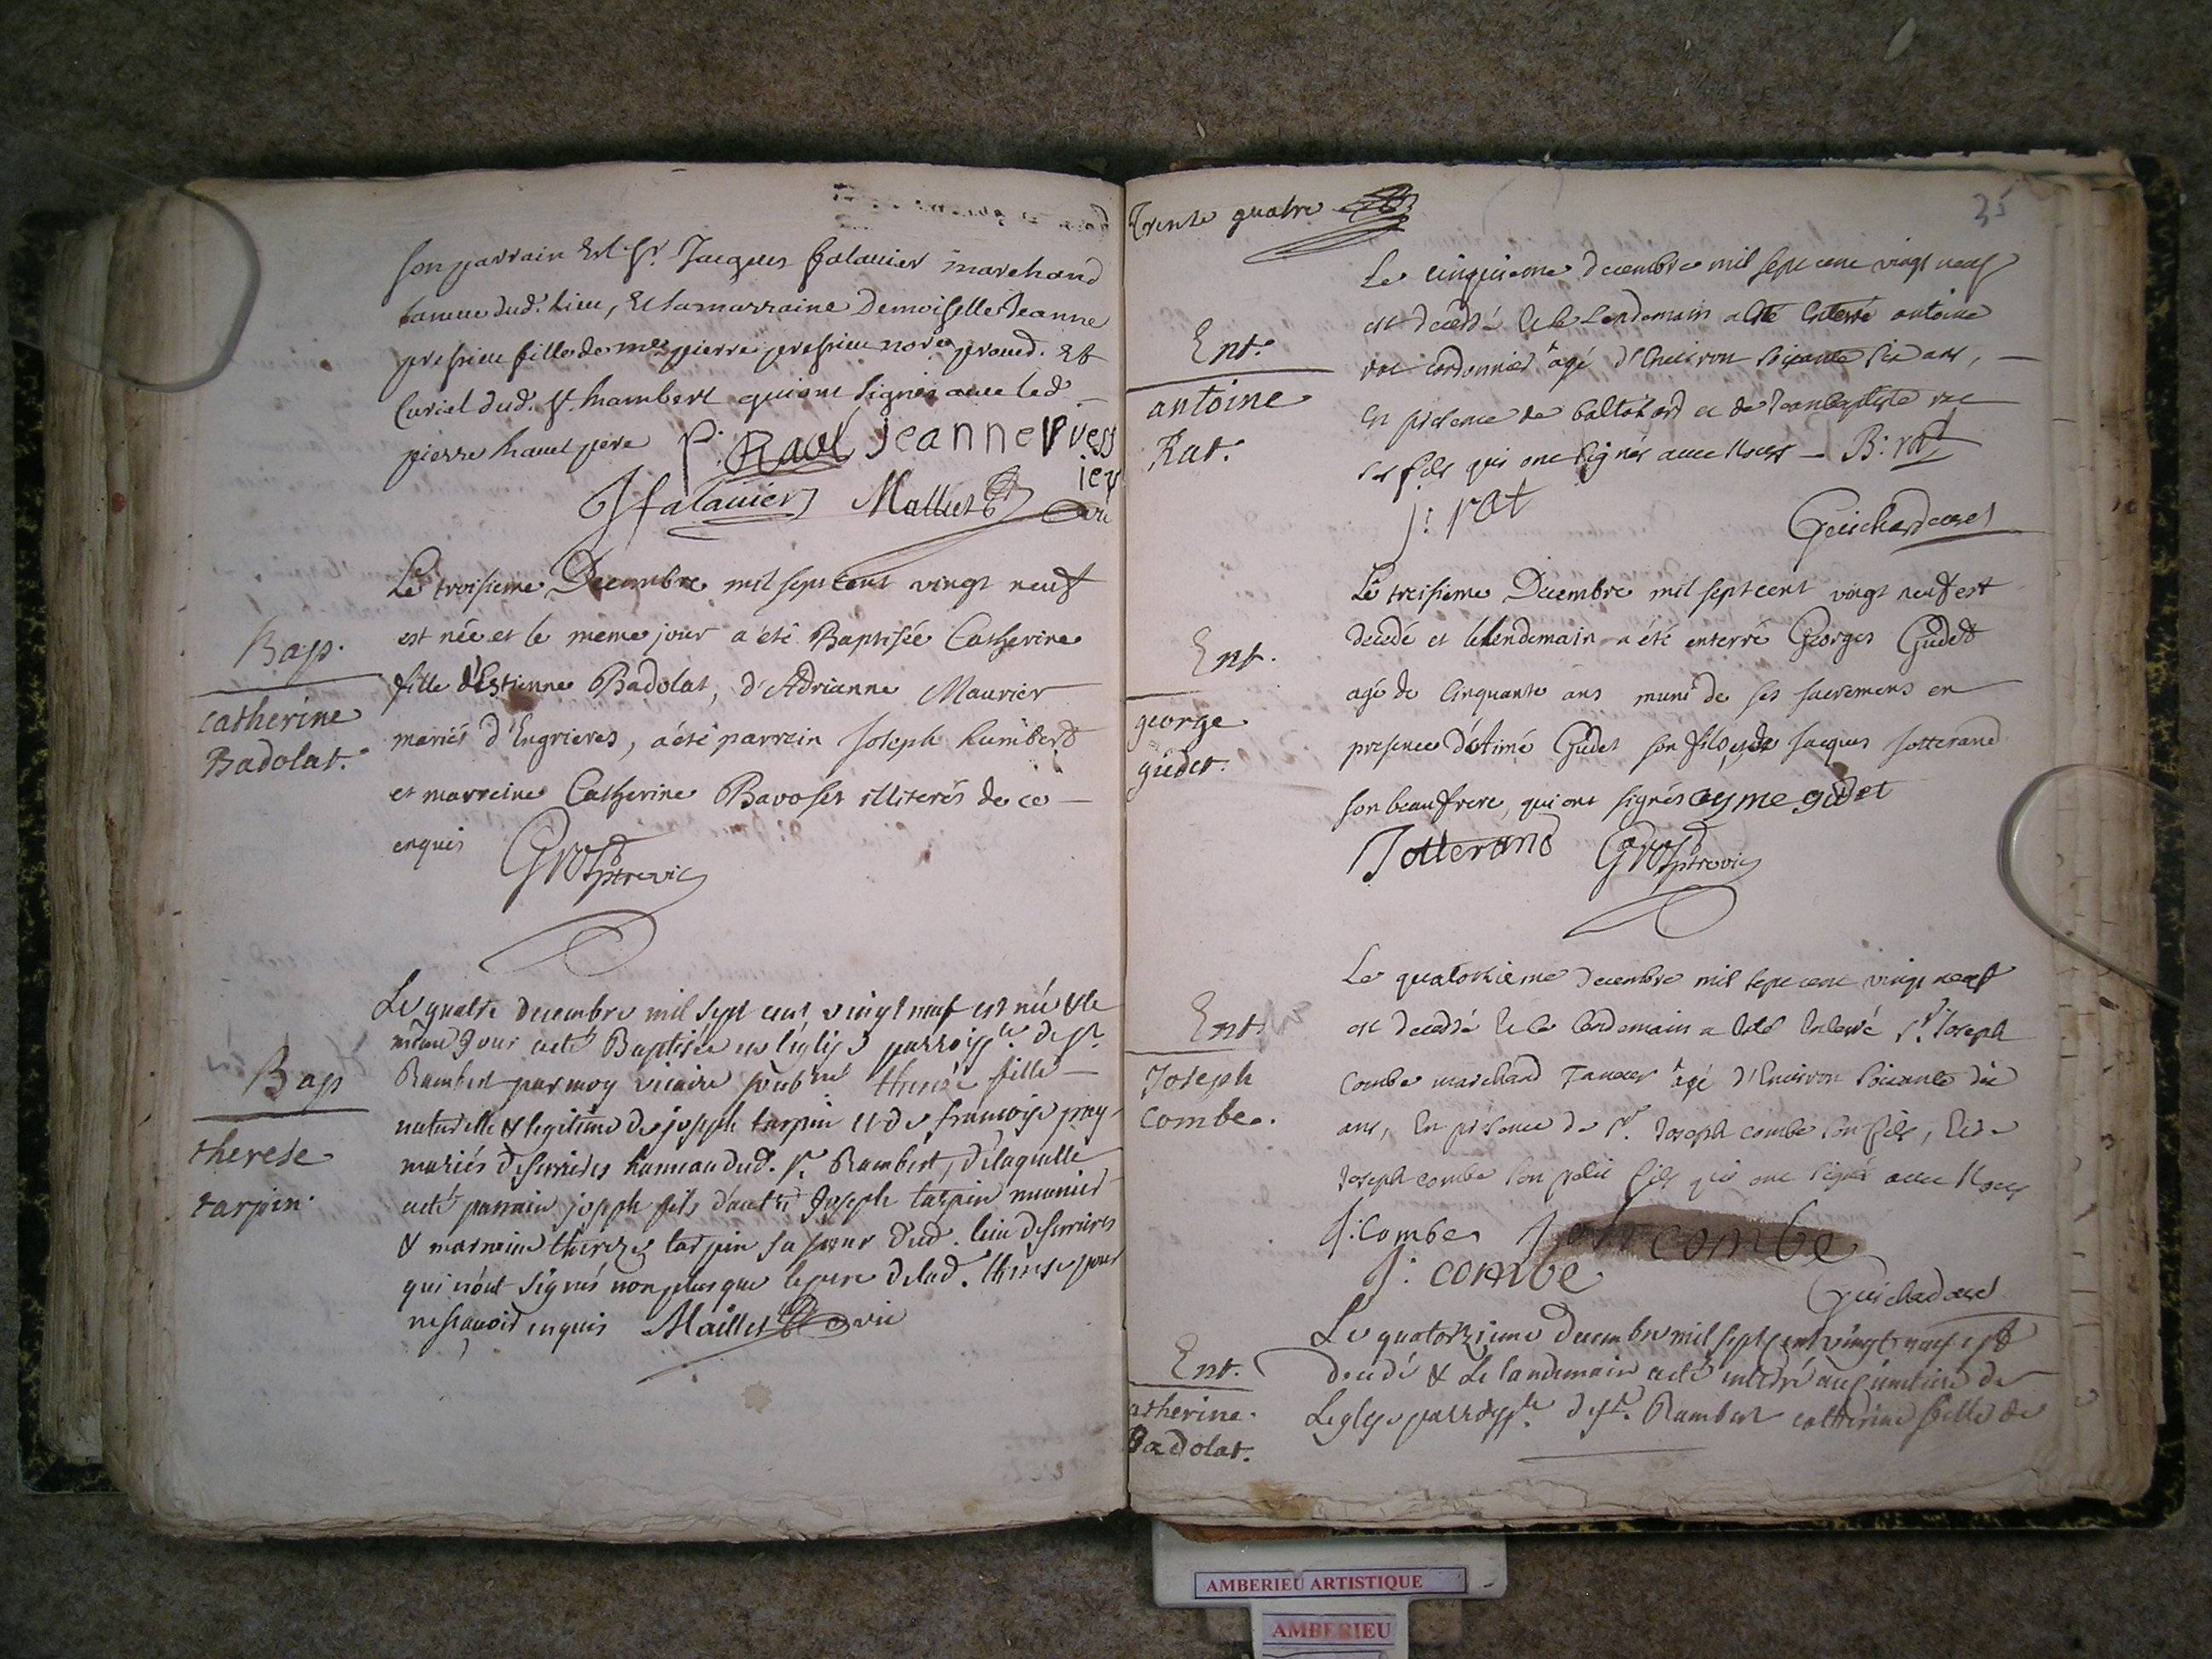 son parrain Est Sr. Jacques falavier marchand
taneur dud. Lieu, Et sa marraine Demoiselle Jeanne
pressieu fille de me pierre pressieu nore procud. Et
Curial dud. St. Rambert qui ont signés avec led.
pierre Ravet pere P. Ravet Jeanne Press
ier
J falavier Mallet vic
Bap.
catherine
Badolat.
Le troisieme Decembre mil sept cent vingt neuf
est née et le meme jour a été Baptisée Catherine
fille d'Estienne Badolat, d'Adrianne Maurier
mariés d'Engrieres, a été parrein Joseph humbert
et marreine Catherine Bavoset illiterés de ce
enquis Gros ptre vic
Bap
therese
tarpin.
Le quatre decembre mil sept cent vingt neuf est née & le
même Jour a été Baptisée en l'églize parroissle. de St.
Rambert par moy vicaire soubné. therese fille
naturelle & legitime de joseph tarpin et de francoise
mariés de serrieres hameau dud. St. Rambert, de laquelle
a été parrain joseph fils d'autre Joseph tarpin meunier
& marraine therese tarpin sa soeur dud. lieu de serrieres
qui n'ont signés non plus que le pere de lad. therese pour
ne scavoir enquis Maillet vic
Trente quatre
35
Ent.
antoine
Rat.
Le cinquieme decembre mil sept cent vingt neuf
est decedé Et le Lendemain a Eté Enterré antoine
rat cordonnier agé d'Environ soixante six ans,
En presence de et de Jean baptiste rat
ses fils qui ont signés avec Nous B: rat
j: rat Guichard curé
Ent.
george
gudet.
Le troisieme Decembre mil sept cent vingt neuf est
decedé et le lendemain a été enterré Georges Gudet
agé de Cinquante ans muni de ses sacremens en
presence d'Aimé Gudet son fils, et de Jacques Jotterand
son beaufrere, qui ont signés ayme gudet
Jotterand Gros ptre vic
Ent.
Joseph
combe.
Le quatorzieme decembre mil sept cent vingt neuf
est decedé Et le lendemain a Eté Enterré Sr. Joseph
Combe marchand Tanneur agé d'Environ soixante dix
ans, En présence de Sr. Joseph combe son fils, Et de
Joseph combe son petit fils qui ont signés avec Nous
J. Combe combe
J: combe
Guichard curé
Ent.
atherine
Badolat.
Le quatorzieme decembre mil sept cent vingt neuf est
decedé & Le landemain a été enterré au cimetiere de
Leglise parroissle. de St. Rambert catherine fille de
AMBERIEU ARTISTIQUE
AMBERIEU